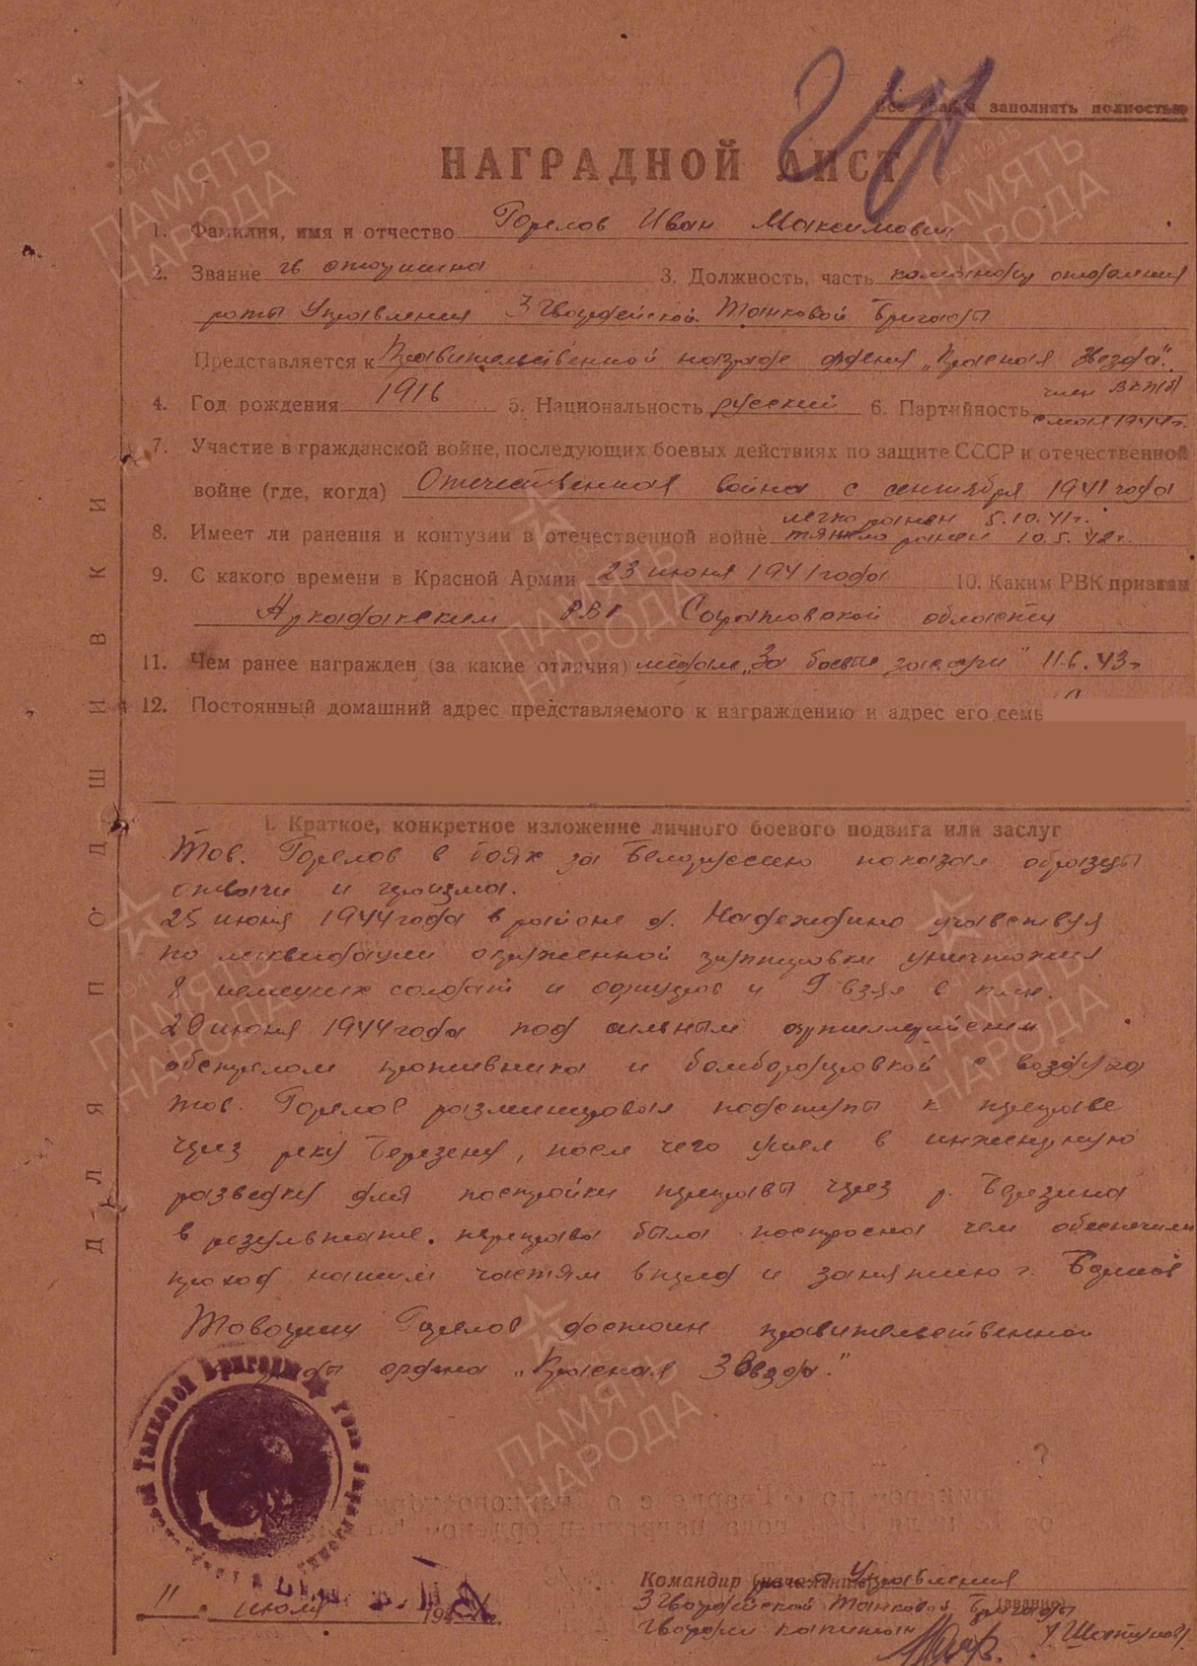 Все графы заполнять полностью
НАГРАДНОЙ ЛИСТ
1. Фамилия, имя и отчество Горелов Иван Максимович
2. Звание гв старшина 3. Должность, часть командир отделения
роты Управления 3 Гвардейской Танковой Бригады
Представляется к Правительственной награде ордену „Красная Звезда".
4. Год рождения 1916 5. Национальность русский 6. Партийность член ВКП(б)
с мая 1944г.
7. Участие в гражданской войне, последующих боевых действиях по защите СССР и отечественной
войне (где, когда) Отечественная война с сентября 1941 года
8. Имеет ли ранения и контузии в отечественной войне легко ранен 5.10.41г.
тяжело ранен 10.5.42г.
9. С какого времени в Красной Армии 23 июня 1941 года 10. Каким РВК призван
Аркадакским РВК Саратовской области
11. Чем ранее награжден (за какие отличия) медаль „За боевые заслуги" 11.6.43г
12. Постоянный домашний адрес представляемого к награждению и адрес его семь
I. Краткое, конкретное изложение личного боевого подвига или заслуг
Тов. Горелов в боях за Белоруссию показал образцы
отваги и героизма.
25 июня 1944 года в районе д. Надеждино участвуя
по ликвидации окруженной группировки уничтожил
8 немецких солдат и офицеров и 9 взял в плен.
июня 1944 года под сильным артиллерийским
обстрелом противника и бомбардировкой с воздуха
тов. Горелов разминировал подступы к переправе
через реку Березену, после чего ушел в инженерную
разведку для постройки переправы через р. Березина
в результате. переправа была построена чем обеспечили
проход нашим частям вперед и занятию г. Борисов
Товарищ Горелов достоин правительственной
ды ордена „Красная Звезда."
Танковой Бригады
11 июля 194
Командир роты Управления
3 Гвардейской Танковой Бригады
(звание)
Гвардии капитан
ДЛЯ ПОДШИВКИ
ПАМЯТЬ
НАРОДА
1941 1945
ПАМЯТЬ
НАРОДА
1941 1945
ПАМЯТЬ
НАРОДА
ПАМЯТЬ
НАРОДА
ПАМЯТЬ
НАРОДА
ПАМЯТЬ
НАРОДА